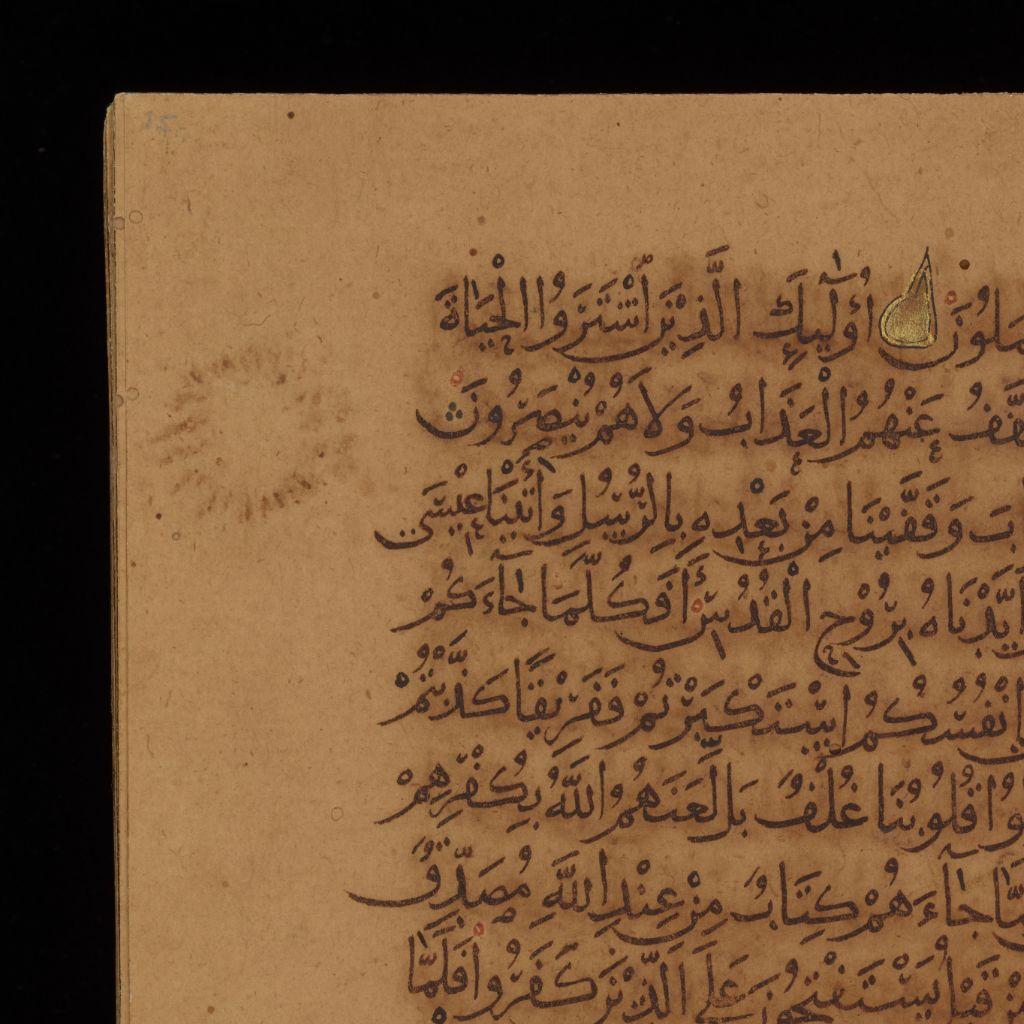 أُوْلَٰٓئِكَ الَّذِيْنَ اشْتَرَوُا الْحَيَاةَ
عَنْهُمُ الْعَذَابُ وَلَا هُمْ يُنْصَرُونَ
وَقَفَّيْنَا مِنْ بَعْدِهِ بِالرُّسُلِ وَأٰتَيْنَا عِيْسَى
أَيَّدْنَاهُ بِرُوْحِ الْقُدُسِ أَفَكُلَّمَا جَآءَكُمْ
أَنْفُسُكُمُ اسْتَكْبَرْتُمْ فَفَرِيْقًا كَذَّبْتُمْ
قُلُوْبُنَا غُلْفٌ بَلْ لَعَنَهُمُ اللَّهُ بِكُفْرِهِمْ
جَآءَهُمْ كِتَابٌ مِنْ عِنْدِ اللَّهِ مُصَدِّقٌ
يَسْتَفْتِحُونَ عَلَى الَّذِيْنَ كَفَرُوا فَلَمَّا